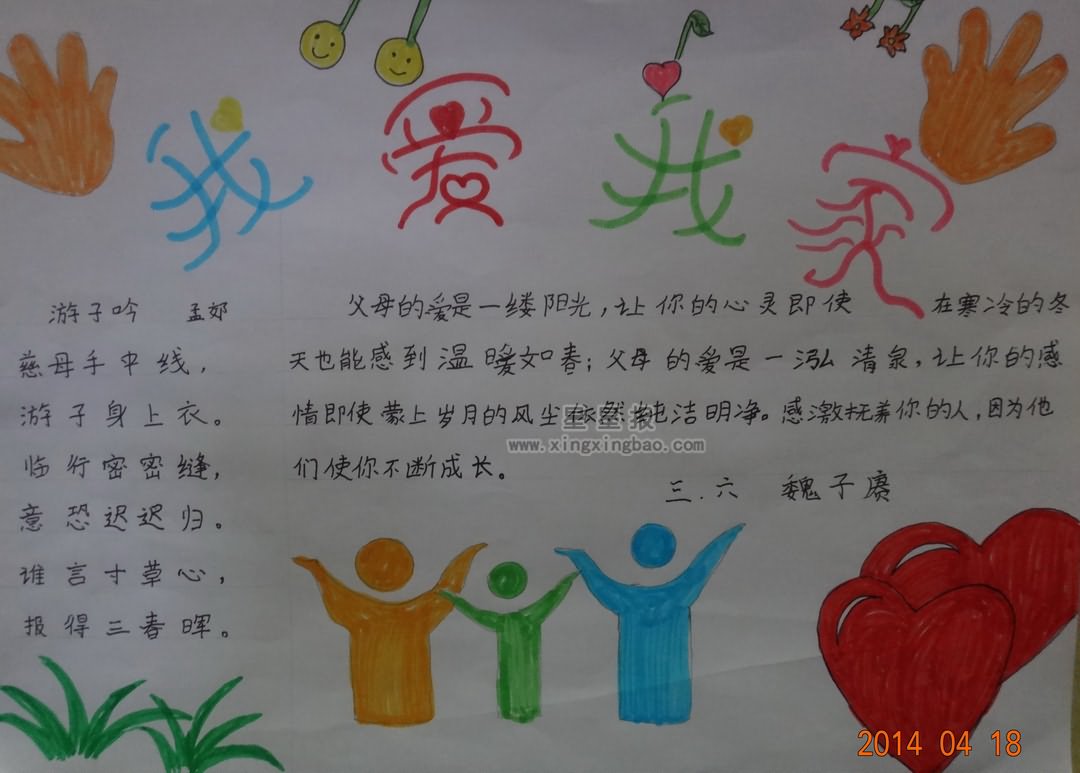 我爱我家
游子吟 孟郊
慈母手中线，
游子身上衣。
临行密密缝，
意恐迟迟归。
谁言寸草心，
报得三春晖。
父母的爱是一缕阳光，让你的心灵即使 在寒冷的冬
天也能感到温暖如春；父母的爱是一泓清泉，让你的感
情即使蒙上岁月的风尘依然纯洁明净。感激抚养你的人，因为他
们使你不断成长。
三.六 魏子赓
星星报
www.xingxingbao.com
2014 04 18